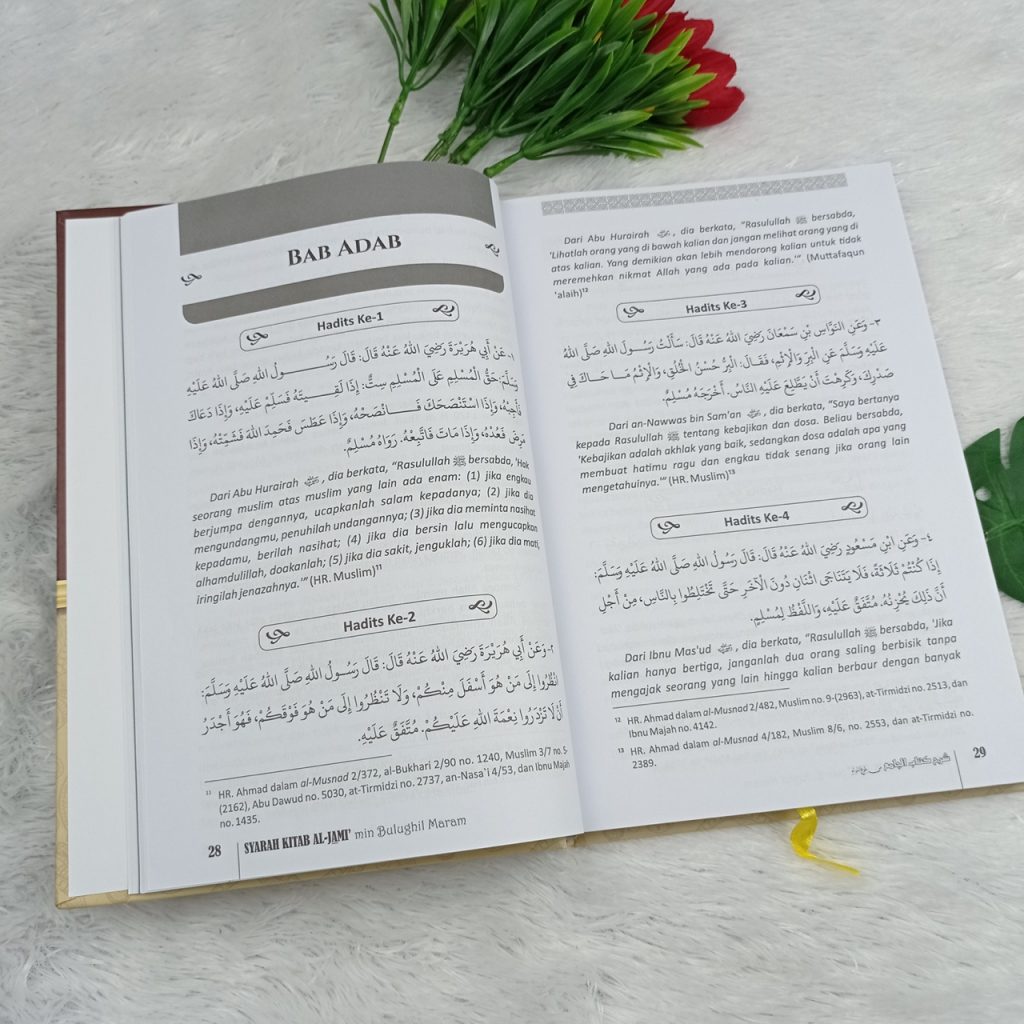 BAB ADAB
Hadits Ke-1
١- عَنْ أَبِي هُرَيْرَةَ رَضِيَ اللهُ عَنْهُ قَالَ: قَالَ رَسُولُ اللهِ صَلَّى اللهُ عَلَيْهِ
وَسَلَّمَ: حَقُّ الْمُسْلِمِ عَلَى الْمُسْلِمِ سِتٌّ: إِذَا لَقِيتَهُ فَسَلِّمْ عَلَيْهِ، وَإِذَا دَعَاكَ
فَأَجِبْهُ، وَإِذَا اسْتَنْصَحَكَ فَانْصَحْهُ، وَإِذَا عَطَسَ فَحَمِدَ اللهَ فَشَمِّتْهُ، وَإِذَا
مَرِضَ فَعُدْهُ، وَإِذَا مَاتَ فَاتَّبِعْهُ. رَوَاهُ مُسْلِمٌ.
Dari Abu Hurairah ؓ, dia berkata, "Rasulullah ﷺ bersabda, 'Hak
seorang muslim atas muslim yang lain ada enam: (1) jika engkau
berjumpa dengannya, ucapkanlah salam kepadanya; (2) jika dia
mengundangmu, penuhilah undangannya; (3) jika dia meminta nasihat
kepadamu, berilah nasihat; (4) jika dia bersin lalu mengucapkan
alhamdulillah, doakanlah; (5) jika dia sakit, jenguklah; (6) jika dia mati,
iringilah jenazahnya.'" (HR. Muslim)¹¹
Hadits Ke-2
٢- وَعَنْ أَبِي هُرَيْرَةَ رَضِيَ اللهُ عَنْهُ قَالَ: قَالَ رَسُولُ اللهِ صَلَّى اللهُ عَلَيْهِ وَسَلَّمَ:
انْظُرُوا إِلَى مَنْ هُوَ أَسْفَلَ مِنْكُمْ، وَلَا تَنْظُرُوا إِلَى مَنْ هُوَ فَوْقَكُمْ، فَهُوَ أَجْدَرُ
أَنْ لَا تَزْدَرُوا نِعْمَةَ اللهِ عَلَيْكُمْ. مُتَّفَقٌ عَلَيْهِ.
¹¹ HR. Ahmad dalam al-Musnad 2/372, al-Bukhari 2/90 no. 1240, Muslim 3/7 no. 5-
(2162), Abu Dawud no. 5030, at-Tirmidzi no. 2737, an-Nasa`i 4/53, dan Ibnu Majah
no. 1435.
28 SYARAH KITAB AL-JAMI' min Bulughil Maram
Dari Abu Hurairah ؓ, dia berkata, "Rasulullah ﷺ bersabda,
'Lihatlah orang yang di bawah kalian dan jangan melihat orang yang di
atas kalian. Yang demikian akan lebih mendorong kalian untuk tidak
meremehkan nikmat Allah yang ada pada kalian.'" (Muttafaqun
'alaih)¹²
Hadits Ke-3
٣- وَعَنِ النَّوَّاسِ بْنِ سَمْعَانَ رَضِيَ اللهُ عَنْهُ قَالَ: سَأَلْتُ رَسُولَ اللهِ صَلَّى اللهُ
عَلَيْهِ وَسَلَّمَ عَنِ الْبِرِّ وَالْإِثْمِ، فَقَالَ: الْبِرُّ حُسْنُ الْخُلُقِ، وَالْإِثْمُ مَا حَاكَ فِي
صَدْرِكَ، وَكَرِهْتَ أَنْ يَطَّلِعَ عَلَيْهِ النَّاسُ. أَخْرَجَهُ مُسْلِمٌ.
Dari an-Nawwas bin Sam'an ؓ, dia berkata, "Saya bertanya
kepada Rasulullah ﷺ tentang kebajikan dan dosa. Beliau bersabda,
'Kebajikan adalah akhlak yang baik, sedangkan dosa adalah apa yang
membuat hatimu ragu dan engkau tidak senang jika orang lain
mengetahuinya.'" (HR. Muslim)¹³
Hadits Ke-4
٤- وَعَنِ ابْنِ مَسْعُودٍ رَضِيَ اللهُ عَنْهُ قَالَ: قَالَ رَسُولُ اللهِ صَلَّى اللهُ عَلَيْهِ وَسَلَّمَ:
إِذَا كُنْتُمْ ثَلَاثَةً، فَلَا يَتَنَاجَى اثْنَانِ دُونَ الْآخَرِ حَتَّى تَخْتَلِطُوا بِالنَّاسِ، مِنْ أَجْلِ
أَنَّ ذَلِكَ يُحْزِنُهُ. مُتَّفَقٌ عَلَيْهِ، وَاللَّفْظُ لِمُسْلِمٍ.
Dari Ibnu Mas'ud ؓ, dia berkata, "Rasulullah ﷺ bersabda, 'Jika
kalian hanya bertiga, janganlah dua orang saling berbisik tanpa
mengajak seorang yang lain hingga kalian berbaur dengan banyak
¹² HR. Ahmad dalam al-Musnad 2/482, Muslim no. 9-(2963), at-Tirmidzi no. 2513, dan
Ibnu Majah no. 4142.
¹³ HR. Ahmad dalam al-Musnad 4/182, Muslim 8/6, no. 2553, dan at-Tirmidzi no.
2389.
شرح كتاب الجامع 29